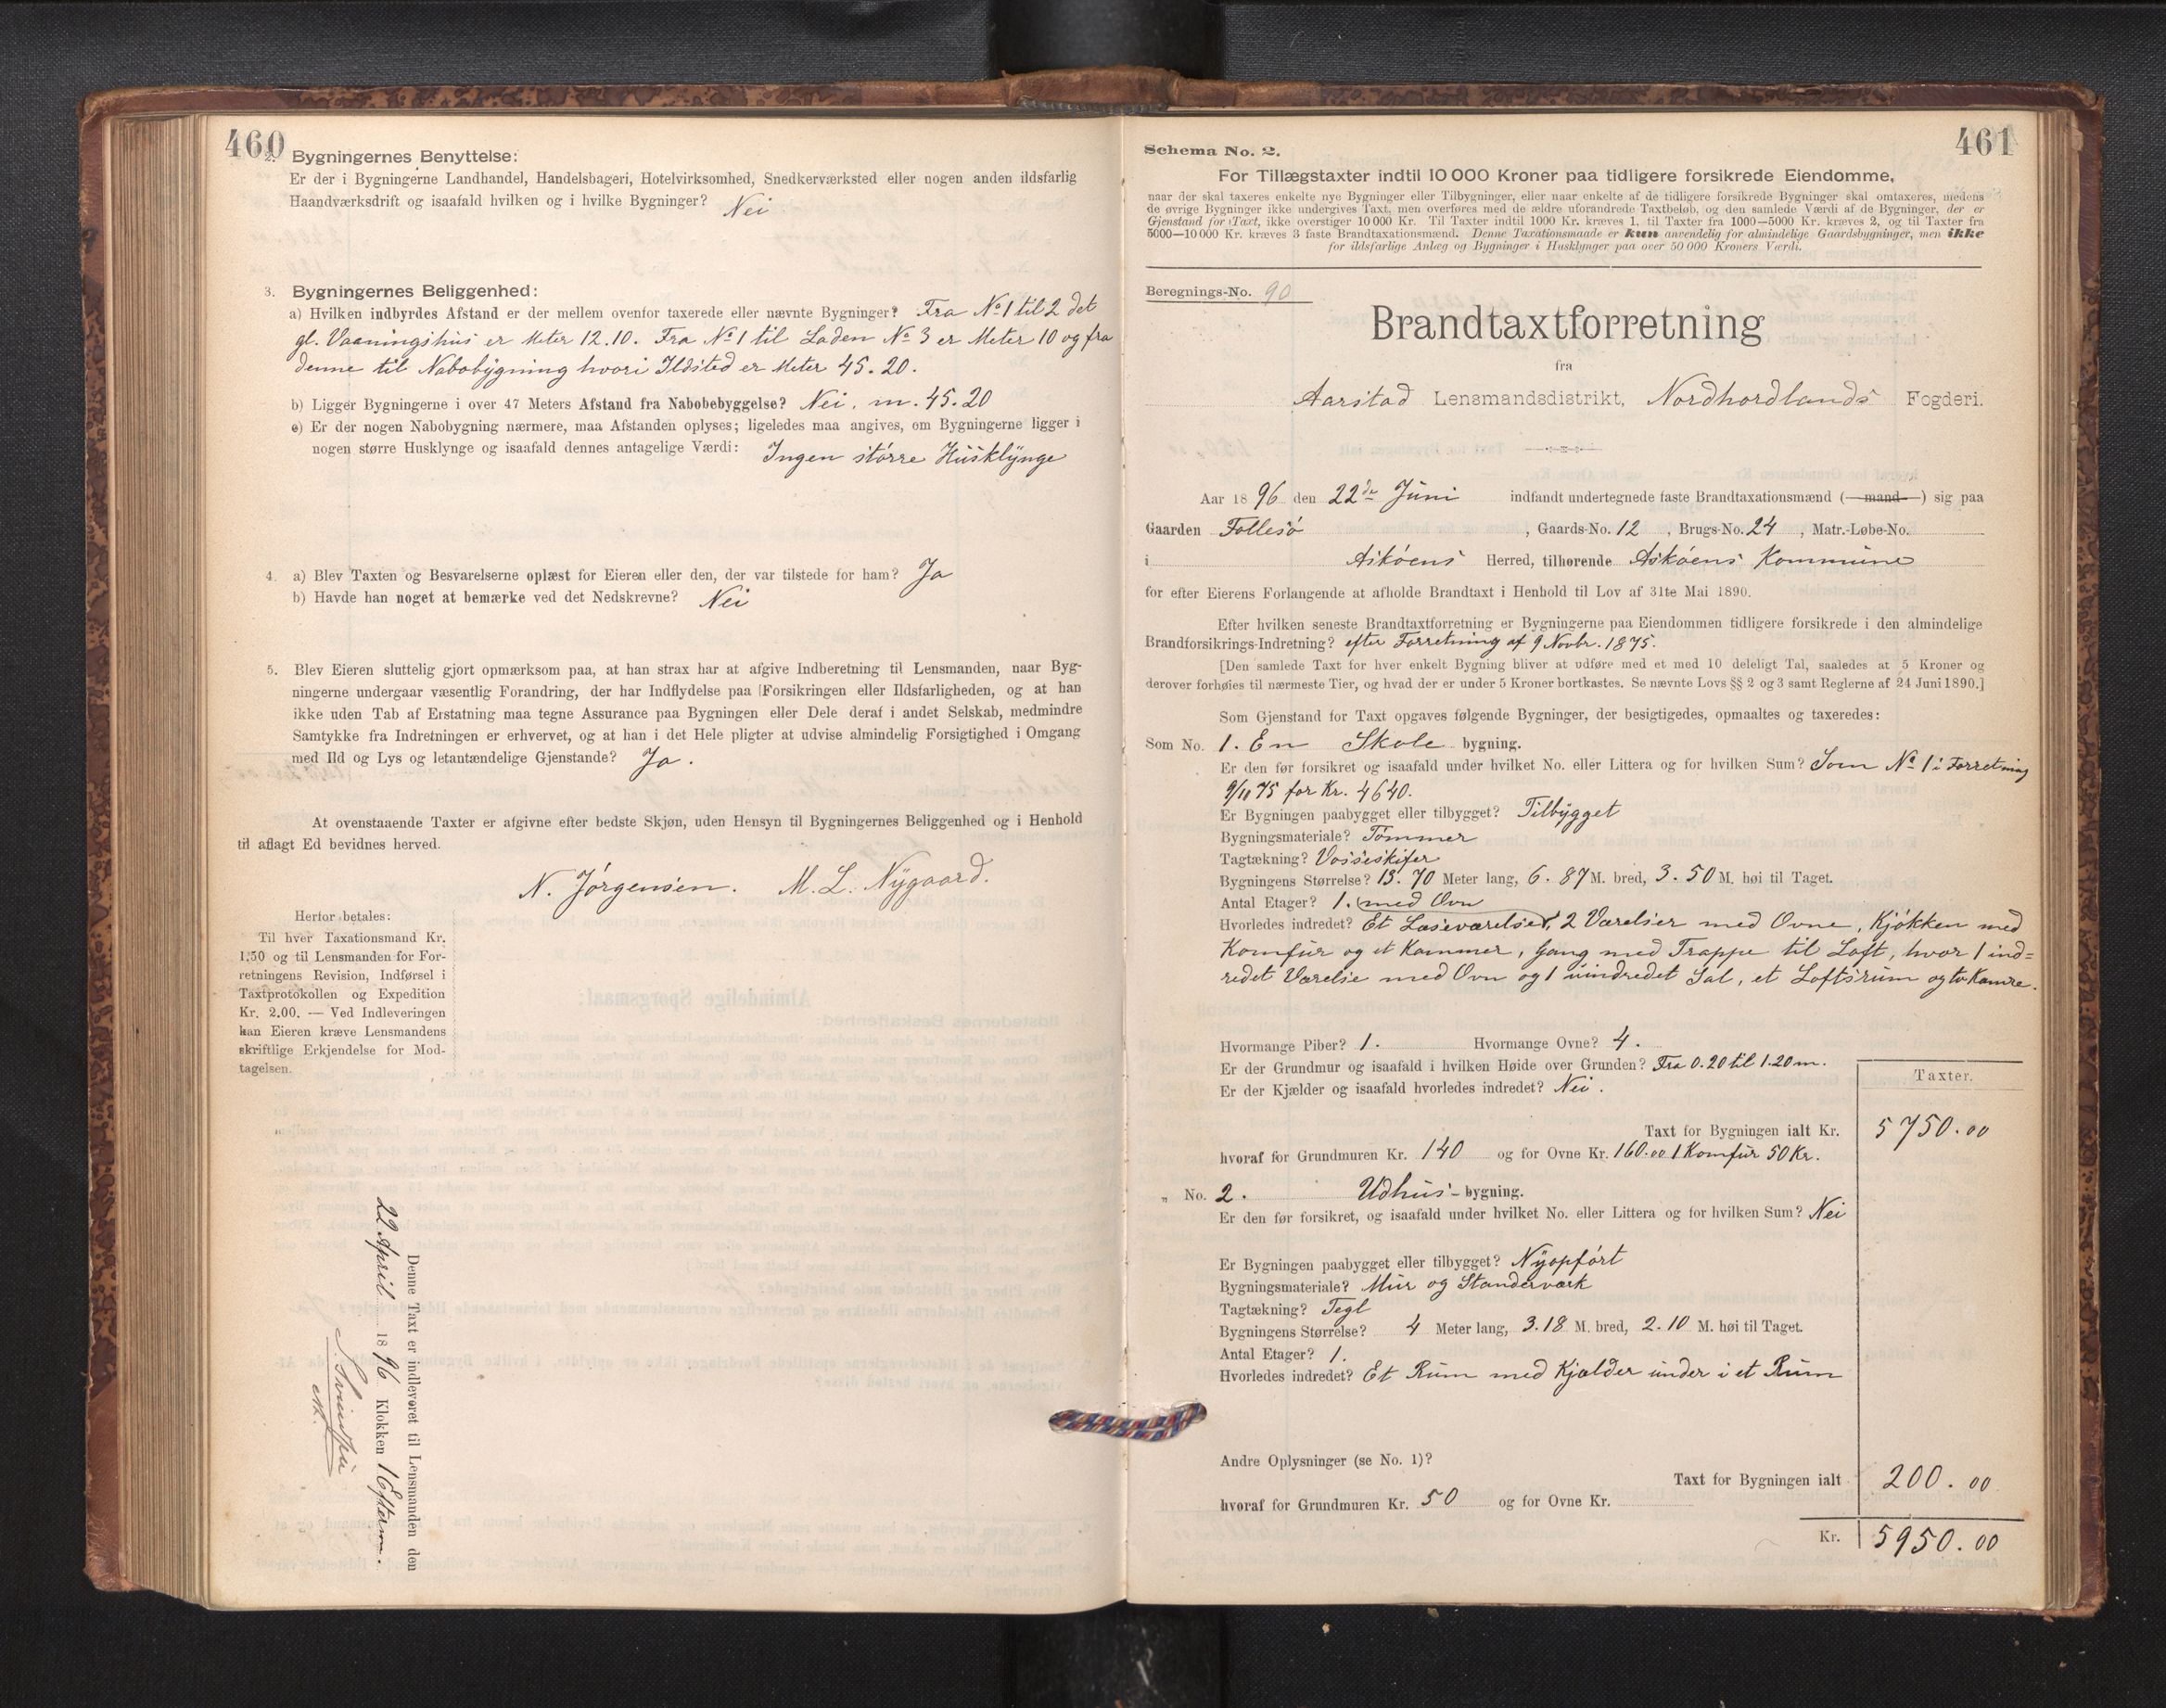 460
2. Bygningernes Benyttelse:
Er der i Bygningerne Landhandel, Handelsbageri, Hotelvirksomhed, Snedkerværksted eller nogen anden ildsfarlig
Haandværksdrift og isaafald hvilken og i hvilke Bygninger? Nei
3. Bygningernes Beliggenhed:
a) Hvilken indbyrdes Afstand er der mellem ovenfor taxerede eller nævnte Bygninger? Fra No 1 til 2 det
gl. Vaaningshus er Meter 12.10. Fra No 1 til Laden No 3 er Meter 10 og fra
denne til Nabobygning hvori Ildsted er Meter 45.20.
b) Ligger Bygningerne i over 47 Meters Afstand fra Nabobebyggelse? Nei. m. 45.20
c) Er der nogen Nabobygning nærmere, maa Afstanden oplyses; ligeledes maa angives, om Bygningerne ligger i
nogen større Husklynge og isaafald dennes antagelige Værdi: Ingen større Husklynge
4. a) Blev Taxten og Besvarelserne oplæst for Eieren eller den, der var tilstede for ham? Ja
b) Havde han noget at bemærke ved det Nedskrevne? Nei
5. Blev Eieren sluttelig gjort opmærksom paa, at han strax har at afgive Indberetning til Lensmanden, naar Byg-
ningerne undergaar væsentlig Forandring, der har Indflydelse paa Forsikringen eller Ildsfarligheden, og at han
ikke uden Tab af Erstatning maa tegne Assurance paa Bygningen eller Dele deraf i andet Selskab, medmindre
Samtykke fra Indretningen er erhvervet, og at han i det Hele pligter at udvise almindelig Forsigtighed i Omgang
med Ild og Lys og letantændelige Gjenstande? Ja.
At ovenstaaende Taxter er afgivne efter bedste Skjøn, uden Hensyn til Bygningernes Beliggenhed og i Henhold
til aflagt Ed bevidnes herved.
N. Jørgensen. M. L. Nygaard.
Herfor betales:
Til hver Taxationsmand Kr.
1.50 og til Lensmanden for For-
retningens Revision, Indførsel i
Taxtprotokollen og Expedition
Kr. 2.00. — Ved Indleveringen
kan Eieren kræve Lensmandens
skriftlige Erkjendelse for Mod-
tagelsen.
Denne Taxt er indleveret til Lensmanden den
22 April 1896 Klokken 1 Efterm.
461
Schema No. 2.
For Tillægstaxter indtil 10 000 Kroner paa tidligere forsikrede Eiendomme,
naar der skal taxeres enkelte nye Bygninger eller Tilbygninger, eller naar enkelte af de tidligere forsikrede Bygninger skal omtaxeres, medens
de øvrige Bygninger ikke undergives Taxt, men overføres med de ældre uforandrede Taxtbeløb, og den samlede Værdi af de Bygninger, der er
Gjenstand for Taxt, ikke overstiger 10 000 Kr. Til Taxter indtil 1000 Kr. kræves 1, til Taxter fra 1000—5000 Kr. kræves 2, og til Taxter fra
5000—10 000 Kr. kræves 3 faste Brandtaxationsmænd. Denne Taxationsmaade er kun anvendelig for almindelige Gaardsbygninger, men ikke
for ildsfarlige Anlæg og Bygninger i Husklynger paa over 50 000 Kroners Værdi.
Beregnings-No. 90
Brandtaxtforretning
fra
Aarstad Lensmandsdistrikt, Nordhordlands Fogderi.
Aar 1896 den 22de Juni indfandt undertegnede faste Brandtaxationsmænd (mand) sig paa
Gaarden Follesø, Gaards-No. 12, Brugs-No. 24, Matr.-Løbe-No.
i Askøens Herred, tilhørende Askøens Kommune
for efter Eierens Forlangende at afholde Brandtaxt i Henhold til Lov af 31te Mai 1890.
Efter hvilken seneste Brandtaxtforretning er Bygningerne paa Eiendommen tidligere forsikrede i den almindelige
Brandforsikrings-Indretning? efter Forretning af 9 Novbr. 1875.
[Den samlede Taxt for hver enkelt Bygning bliver at udføre med et med 10 deleligt Tal, saaledes at 5 Kroner og
derover forhøies til nærmeste Tier, og hvad der er under 5 Kroner bortkastes. Se nævnte Lovs §§ 2 og 3 samt Reglerne af 24 Juni 1890.]
Som Gjenstand for Taxt opgaves følgende Bygninger, der besigtigedes, opmaaltes og taxeredes:
Som No. 1. En Skole bygning.
Er den før forsikret og isaafald under hvilket No. eller Littera og for hvilken Sum? Som No 1 i Forretning
9/11 75 for Kr. 4640.
Er Bygningen paabygget eller tilbygget? Tilbygget
Bygningsmateriale? Tømmer
Tagtækning? Vosseskifer
Bygningens Størrelse? 13.70 Meter lang, 6.87 M. bred, 3.50 M. høi til Taget.
Antal Etager? 1. med Ovn
Hvorledes indredet? Et Læseværelse, 2 Værelser med Ovne, Kjøkken med
Komfur og et Kammer, Gang med Trappe til Loft, hvor 1 ind=
redet Værelse med Ovn og 1 uindredet Sal, et Loftsrum og to Kamre.
Hvormange Piber? 1. Hvormange Ovne? 4.
Er der Grundmur og isaafald i hvilken Høide over Grunden? Fra 0.20 til 1.20 m.
Er der Kjælder og isaafald hvorledes indredet? Nei.
Taxter.
Taxt for Bygningen ialt Kr. 5750.00
hvoraf for Grundmuren Kr. 140 og for Ovne Kr. 160.00 1 Komfur 50 Kr.
" No. 2. Udhus-bygning.
Er den før forsikret, og isaafald under hvilket No. eller Littera og for hvilken Sum? Nei
Er Bygningen paabygget eller tilbygget? Nyopført
Bygningsmateriale? Mur og Standerværk
Tagtækning? Tegl
Bygningens Størrelse? 4 Meter lang, 3.18 M. bred, 2.10 M. høi til Taget.
Antal Etager? 1.
Hvorledes indredet? Et Rum med Kjælder under i et Rum
Andre Oplysninger (se No. 1)?
Taxt for Bygningen ialt 200.00
hvoraf for Grundmuren Kr. 50 og for Ovne Kr.
Kr. 5950.00